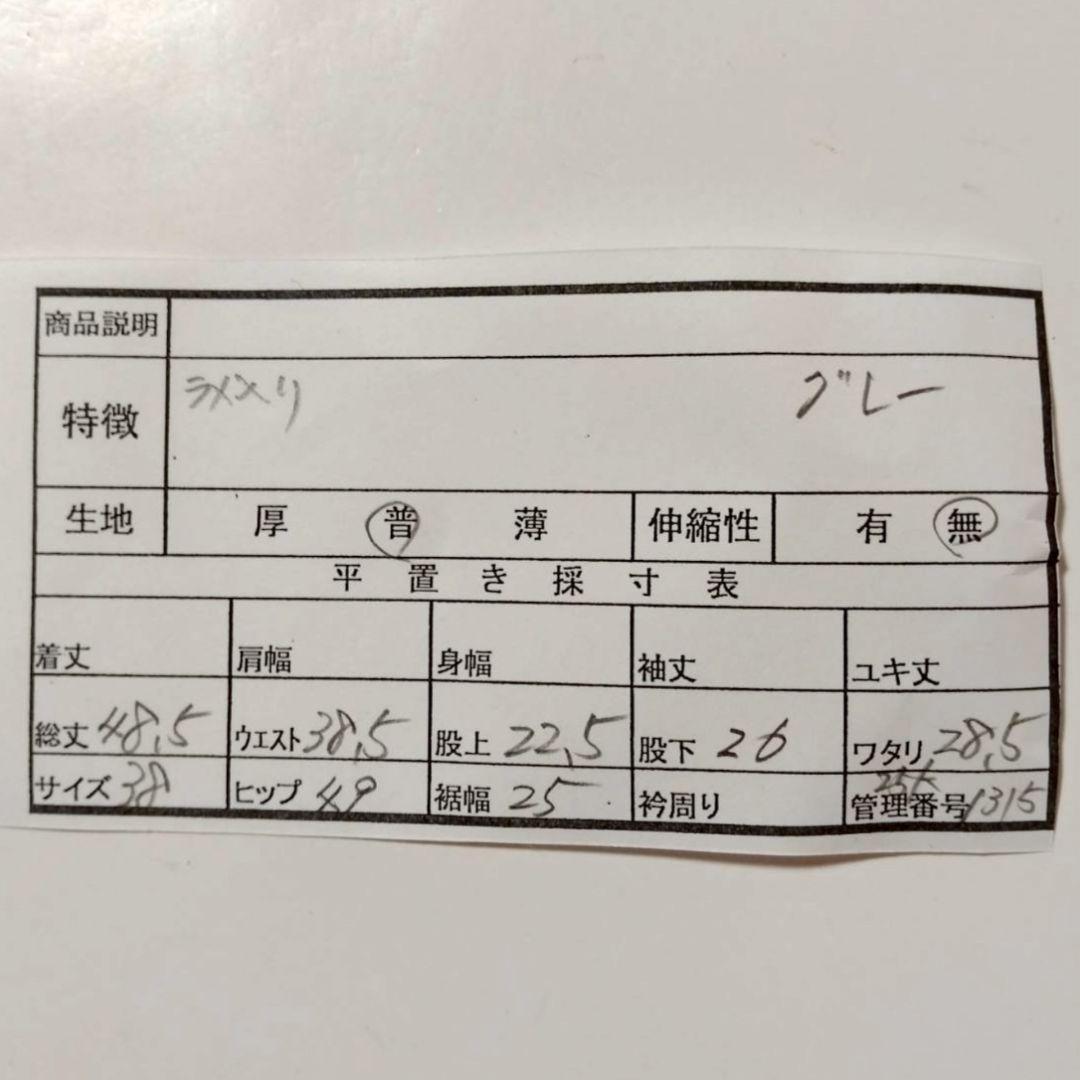 商品説明
特徴 ラメ入り グレー
生地 厚 普 薄 伸縮性 有 無
平置き採寸表
着丈 肩幅 身幅 袖丈 ユキ丈
総丈 48,5 ウエスト 38,5 股上 22,5 股下 26 ワタリ 28,5
サイズ 38 ヒップ 49 裾幅 25 衿周り 管理番号 1315